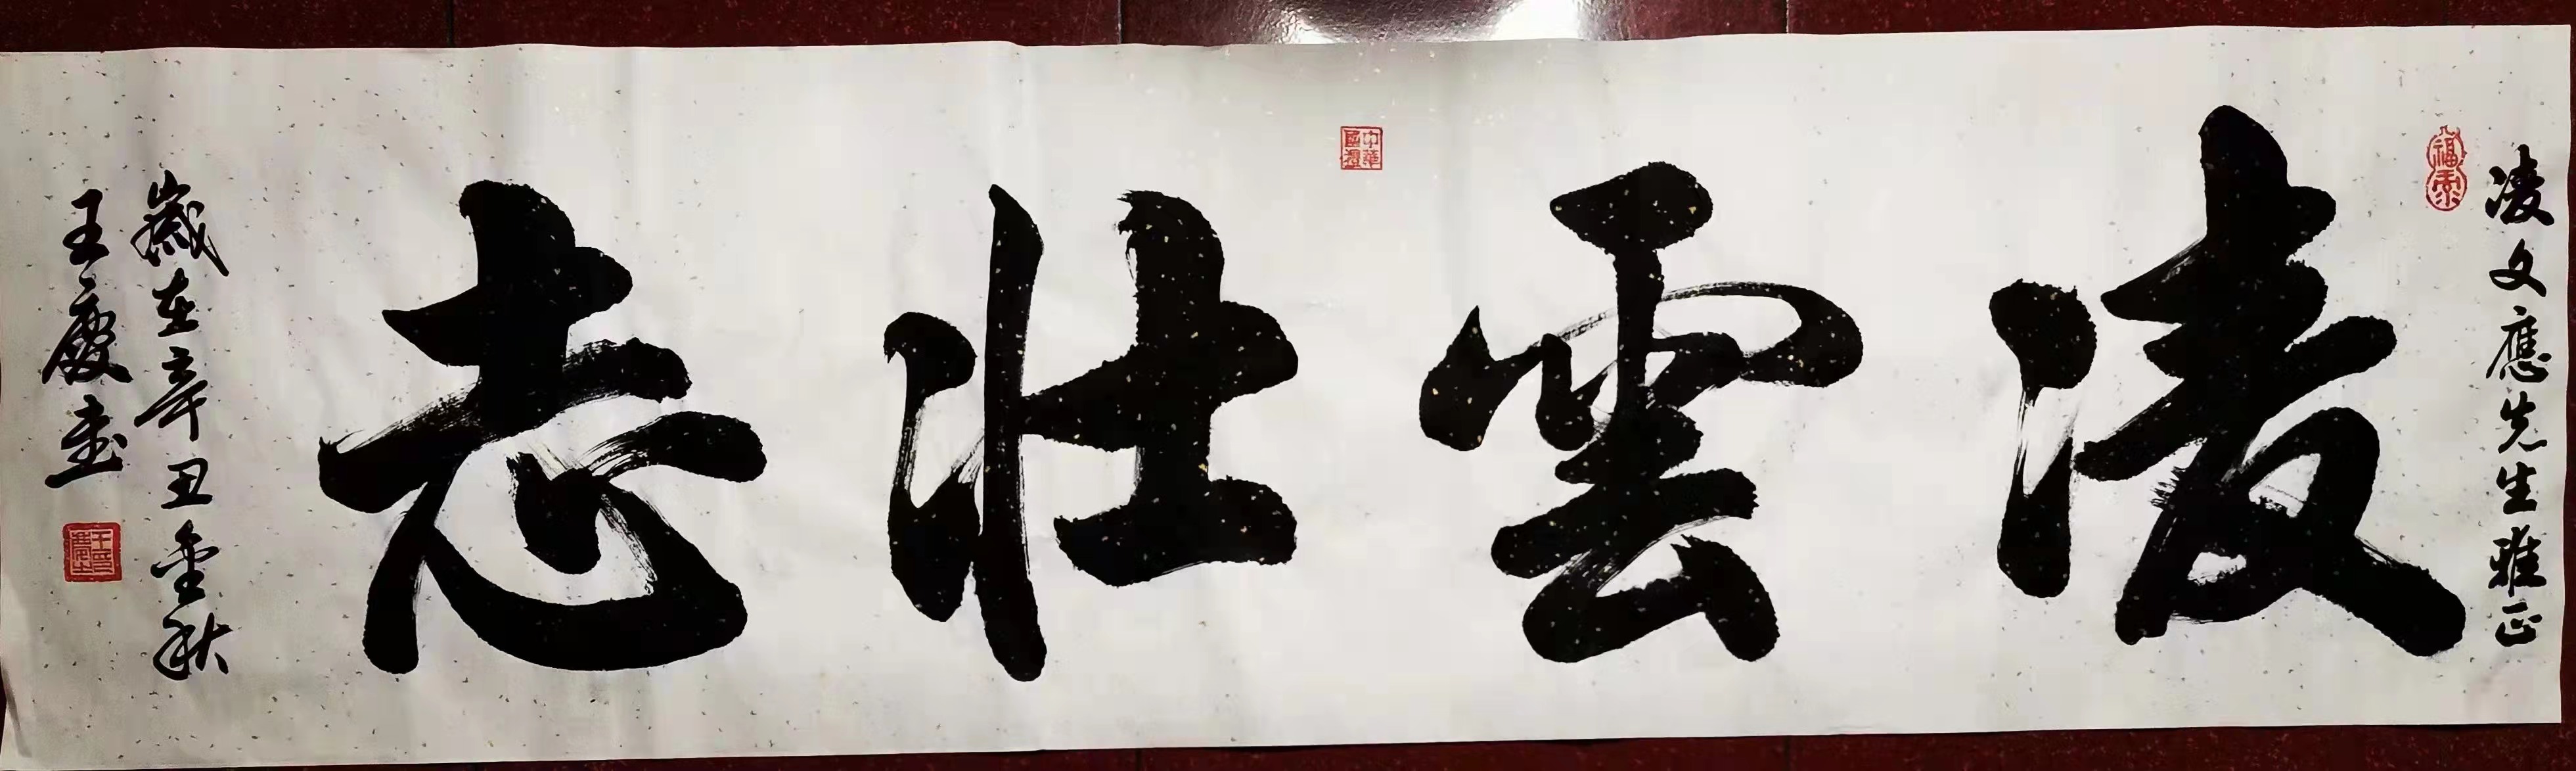 凌文應先生雅正
凌雲壯志
歲在辛丑金秋
王慶書
福泰